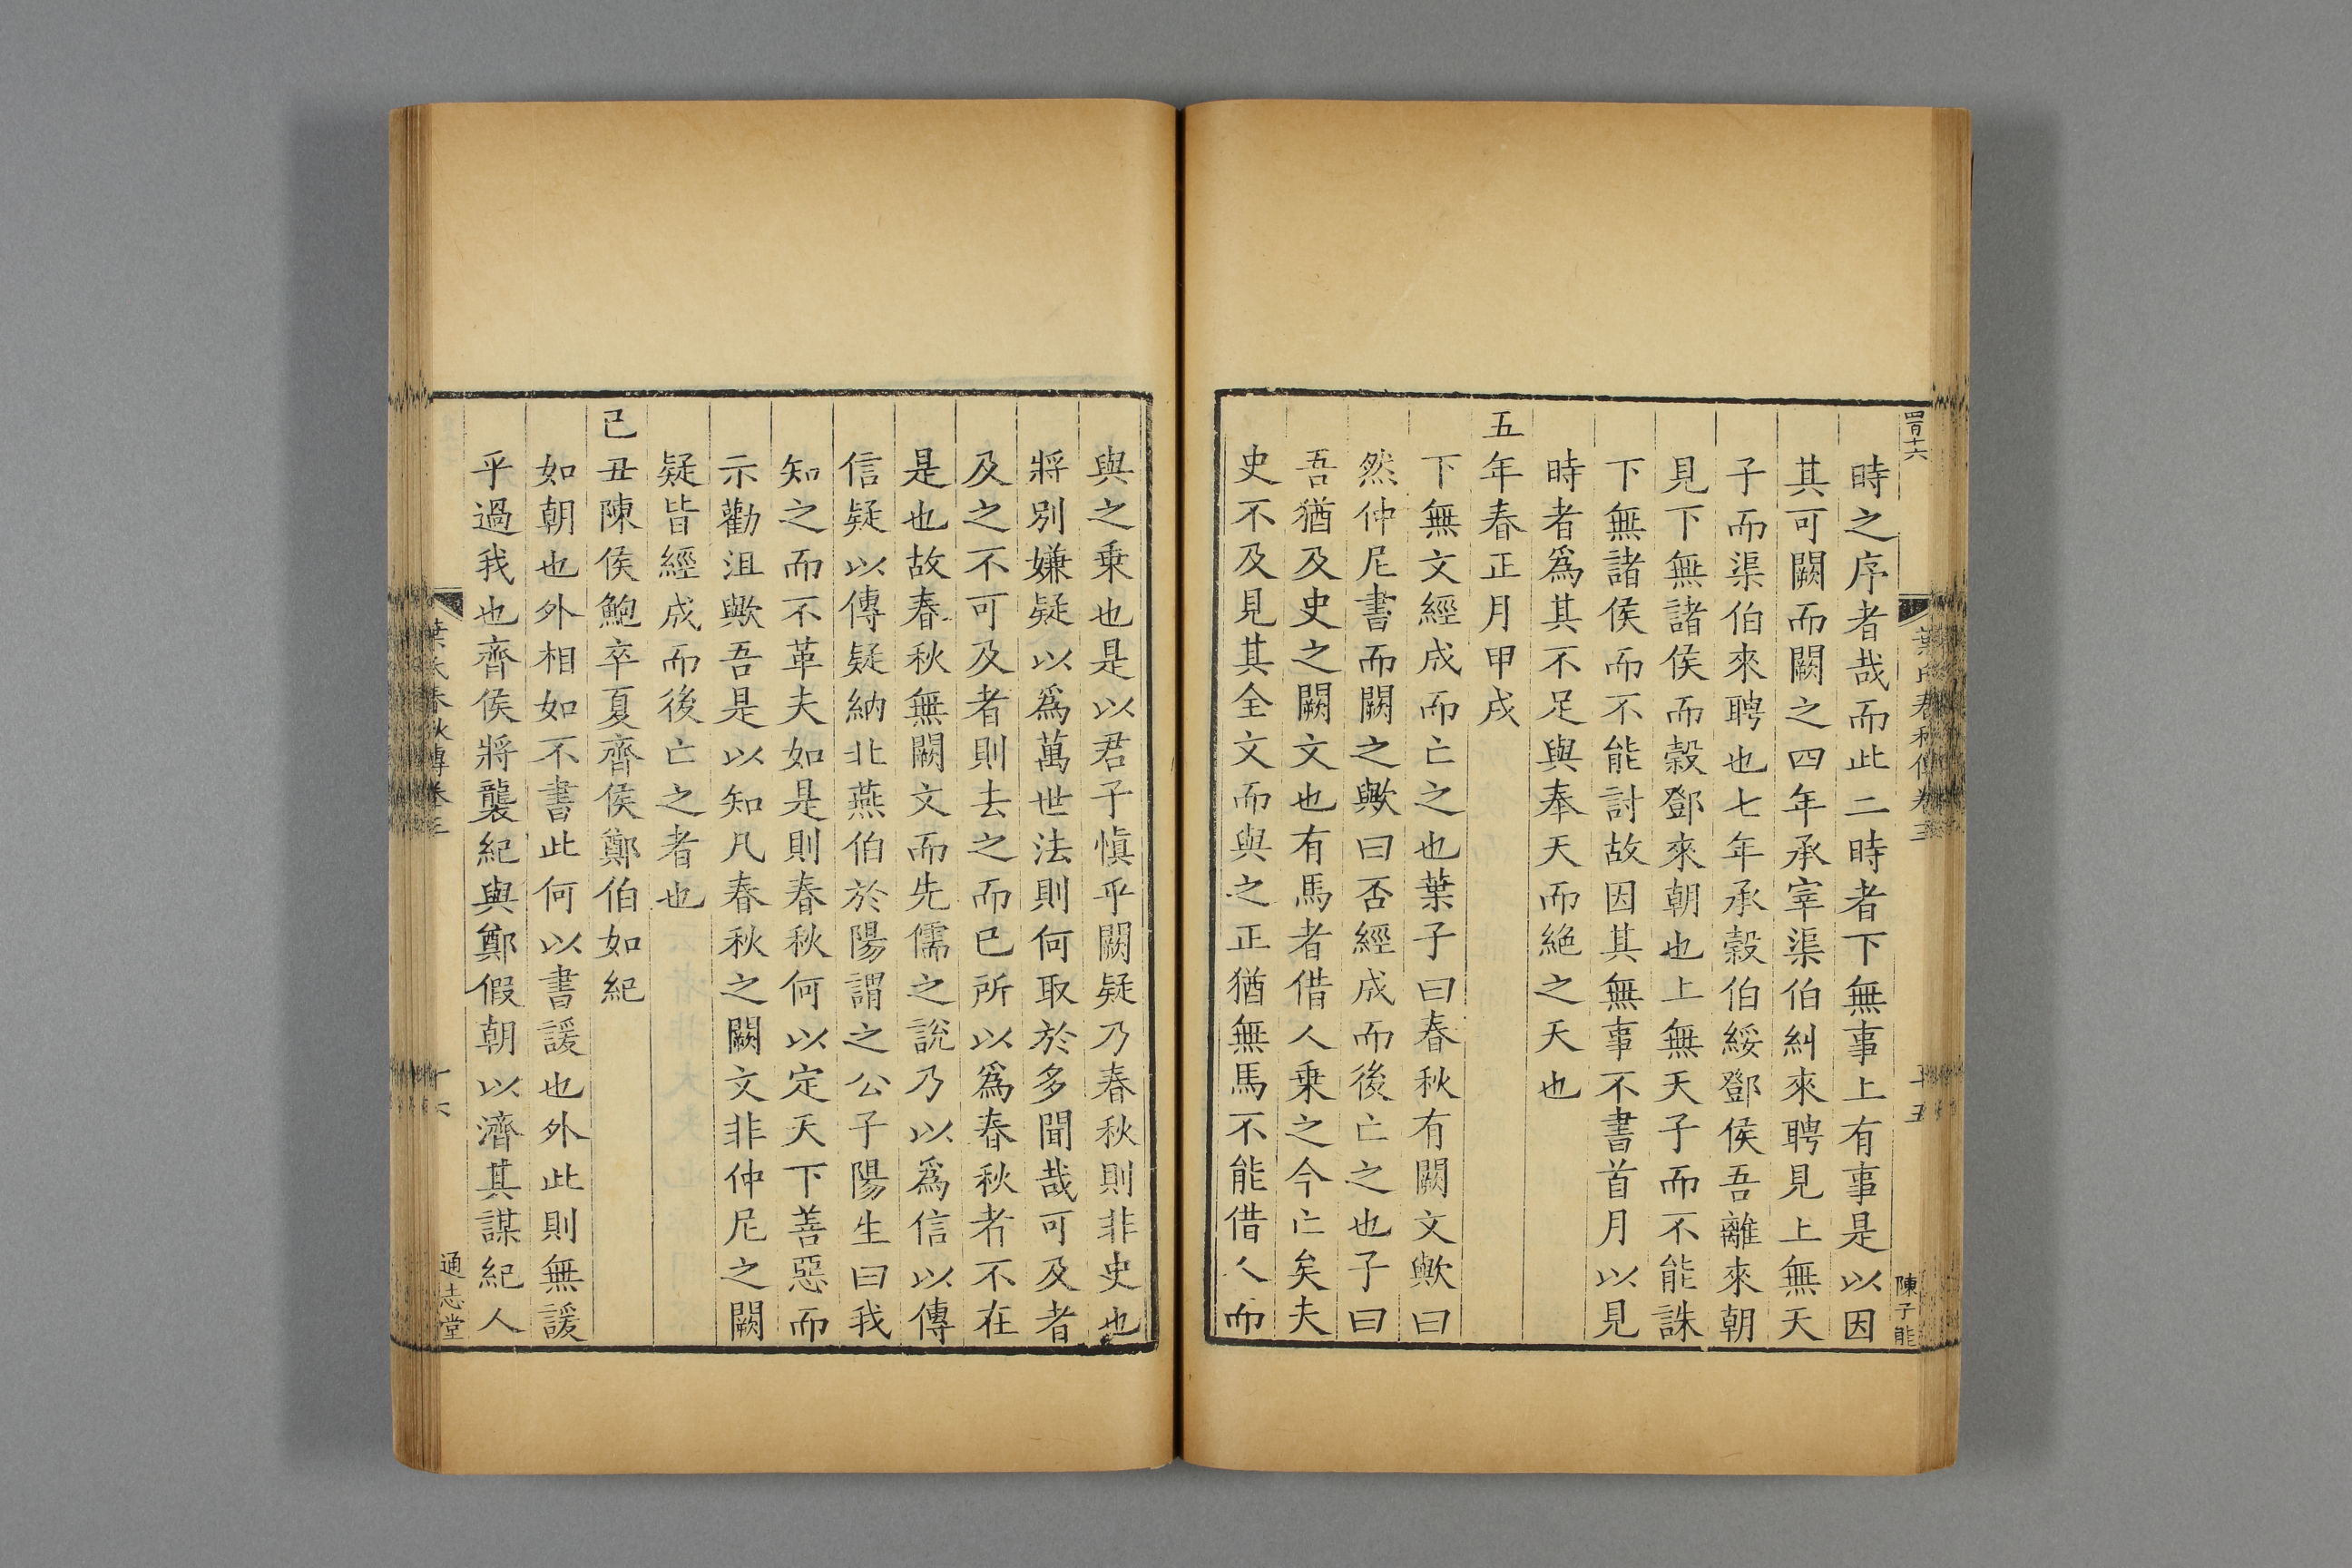 時之序者哉而此二時者下無事上有事是以因
其可闕而闕之四年承宰渠伯糾來聘見上無天
子而渠伯來聘也七年承榖伯綏鄧侯吾離來朝
見下無諸侯而榖鄧來朝也上無天子而不能誅
下無諸侯而不能討故因其無事不書首月以見
時者爲其不足與奉天而絶之天也
五年春正月甲戌
下無文經成而亡之也葉子曰春秋有闕文歟曰
然仲尼書而闕之歟曰否經成而後亡之也子曰
吾猶及史之闕文也有馬者借人乗之今亡矣夫
史不及見其全文而與之正猶無馬不能借人而
與之乗也是以君子愼乎闕疑乃春秋則非史也
將別嫌疑以爲萬世法則何取於多聞哉可及者
及之不可及者則去之而已所以爲春秋者不在
是也故春秋無闕文而先儒之說乃以爲信以傳
信疑以傳疑納北燕伯於陽謂之公子陽生曰我
知之而不革夫如是則春秋何以定天下善惡而
示勸沮歟吾是以知凡春秋之闕文非仲尼之闕
疑皆經成而後亡之者也
己丑陳侯鮑卒夏齊侯鄭伯如紀
如朝也外相如不書此何以書諼也外此則無諼
乎過我也齊侯將襲紀與鄭假朝以濟其謀紀人
葉氏春秋傳卷三
十五
陳子能
葉氏春秋傳卷三
十六
通志堂